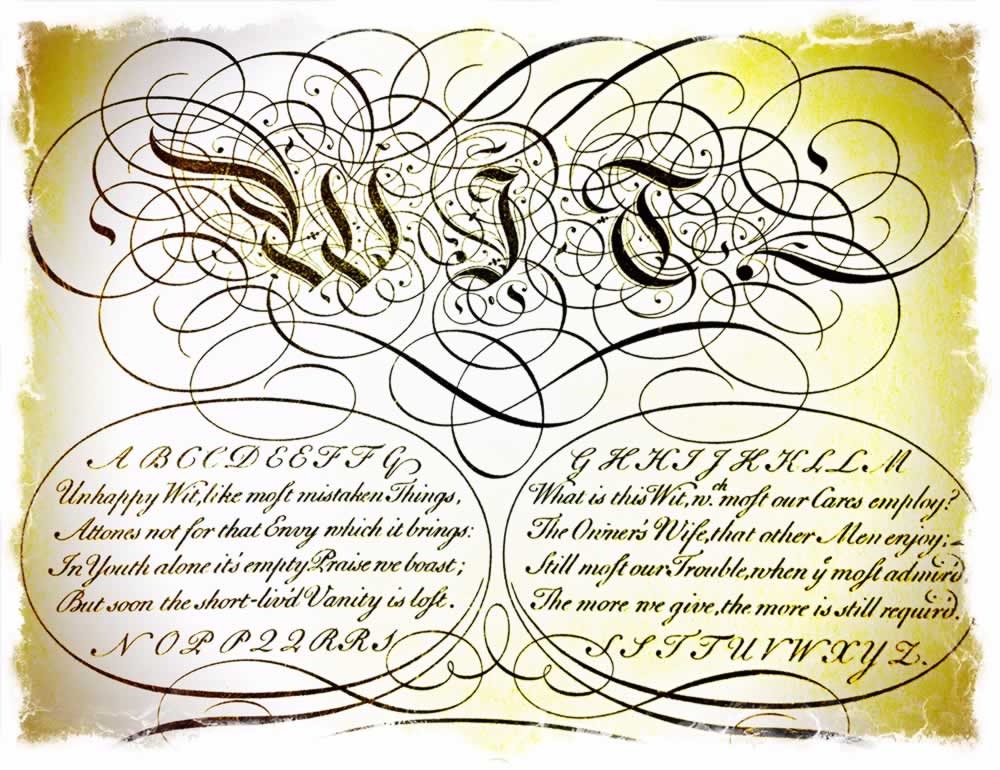 WIT.
A B C C D E E F F G
Unhappy Wit, like moſt mistaken Things,
Attones not for that Envy which it brings:
In Youth alone it's empty Praise we boast;
But soon the short-liv'd Vanity is loſt.
N O P P Q Q R R S
G H H I J K K L L M
What is this Wit, w.ch moſt our Cares employ?
The Owner's Wife, that other Men enjoy;
Still moſt our Trouble, when yͤ moſt admir'd
The more we give, the more is still requir'd.
S S T T U V W X Y Z.